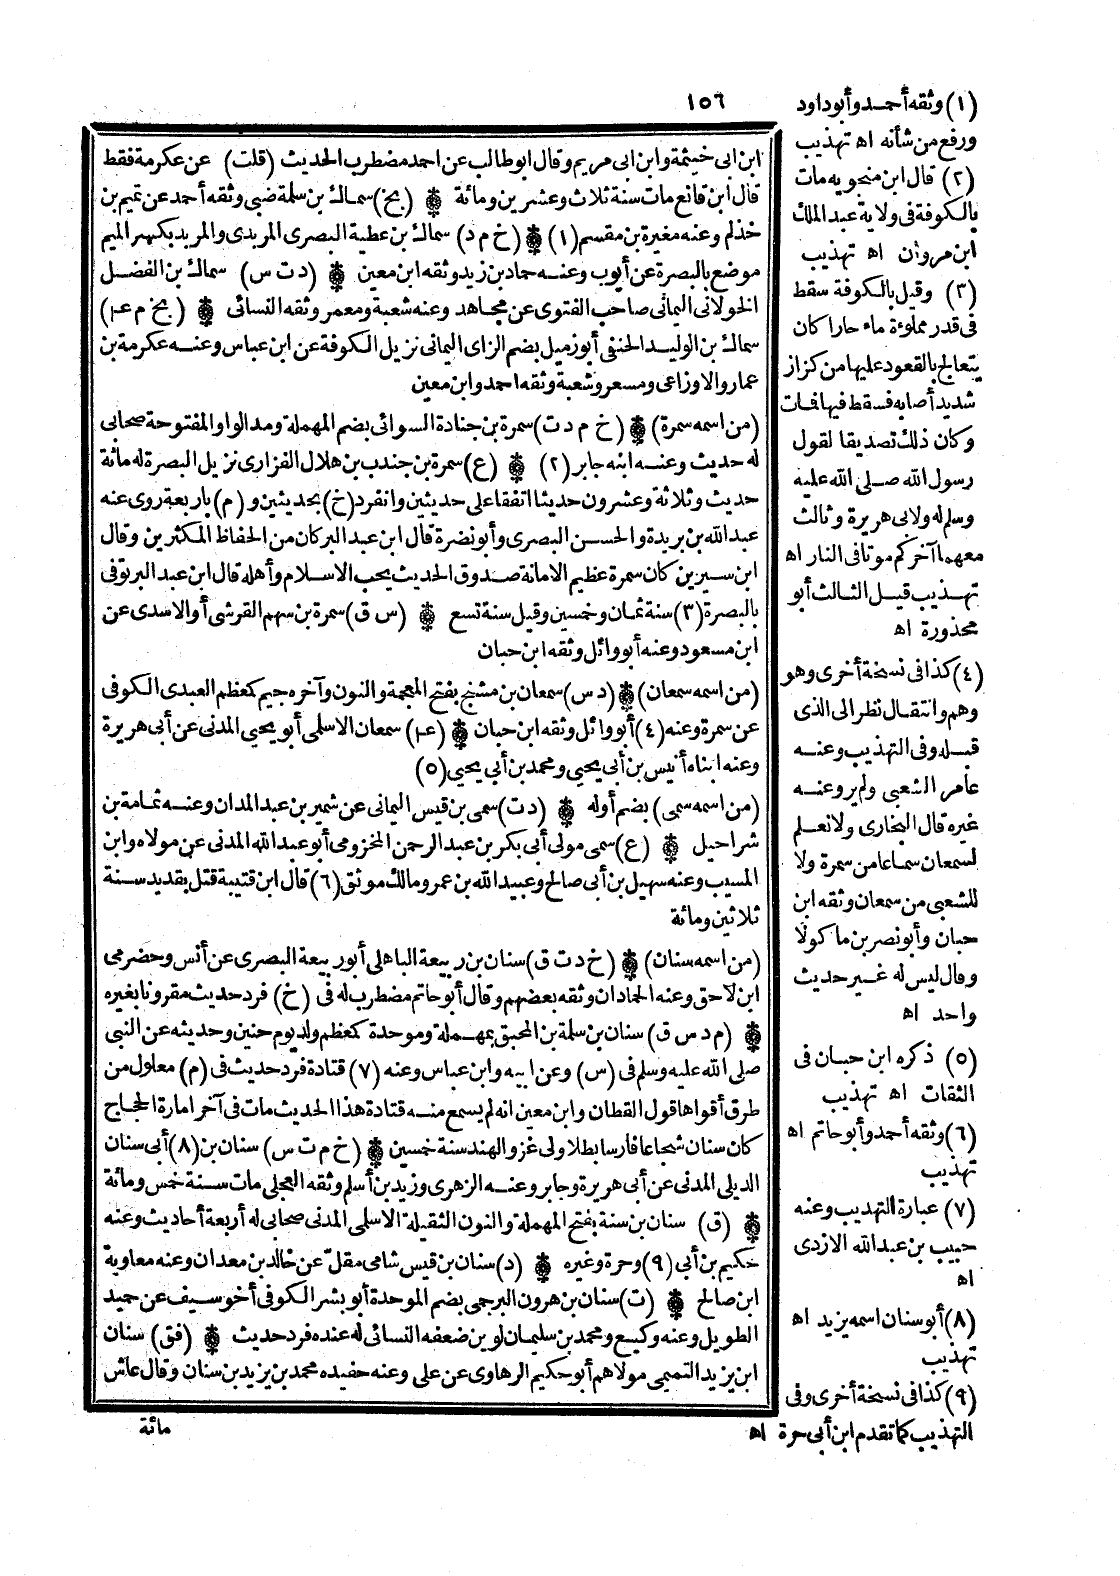 ١٥٦
ابن ابى خيثمة وابن ابى مريم وقال ابو طالب عن احمد مضطرب الحديث (قلت) عن عكرمة فقط
قال ابن قانع مات سنة ثلاث وعشرين ومائة ❁ (بخ) سماك بن سلمة ضبى وثقه أحمد عن تميم بن
خذلم وعنه مغيرة بن مقسم (١) ❁ (خ م د) سماك بن عطية البصرى المربدى والمربد بكسر الميم
موضع بالبصرة عن أيوب وعنه حماد بن زيد وثقه ابن معين ❁ (د ت س) سماك بن الفضل
الخولانى اليمانى صاحب الفتوى عن مجاهد وعنه شعبة ومعمر وثقه النسائى ❁ (بخ م عـ)
سماك بن الوليد الحنفى أبو زميل بضم الزاى اليمانى نزيل الكوفة عن ابن عباس وعنه عكرمة بن
عمار والاوزاعى ومسعر وشعبة وثقه احمد وابن معين
(من اسمه سمرة) ❁ (خ م د ت) سمرة بن جنادة السوائى بضم المهملة ومد الواو المفتوحة صحابى
له حديث وعنه ابنه جابر (٢) ❁ (ع) سمرة بن جندب بن هلال الفزارى نزيل البصرة له مائة
حديث وثلاثة وعشرون حديثا اتفقا على حديثين وانفرد (خ) بحديثين و (م) باربعة روى عنه
عبد الله بن بريدة والحسن البصرى وأبو نضرة قال ابن عبد البر كان من الحفاظ المكثرين وقال
ابن سيرين كان سمرة عظيم الامانة صدوق الحديث يحب الاسلام وأهله قال ابن عبد البر توفى
بالبصرة (٣) سنة ثمان وخمسين وقيل سنة تسع ❁ (س ق) سمرة بن سهم القرشى أو الاسدى عن
ابن مسعود وعنه أبو وائل وثقه ابن حبان
(من اسمه سمعان) ❁ (د س) سمعان بن مشنج بفتح المعجمة والنون وآخره جيم كمعظم العبدى الكوفى
عن سمرة وعنه (٤) أبو وائل وثقه ابن حبان ❁ (عـ) سمعان الاسلمى أبو يحيى المدنى عن أبى هريرة
وعنه ابناه أنيس بن أبى يحيى ومحمد بن أبى يحيى (٥)
(من اسمه سمى) بضم أوله ❁ (د ت) سمى بن قيس اليمانى عن شمير بن عبد المدان وعنه ثمامة بن
شراحيل ❁ (ع) سمى مولى أبى بكر بن عبد الرحمن المخزومى أبو عبد الله المدنى عن مولاه وابن
المسيب وعنه سهيل بن أبى صالح وعبيد الله بن عمر ومالك موثق (٦) قال ابن قتيبة قتل بقديد سنة
ثلاثين ومائة
(من اسمه سنان) ❁ (خ د ت ق) سنان بن ربيعة الباهلى أبو ربيعة البصرى عن أنس وحضرمى
ابن لاحق وعنه الحمادان وثقه بعضهم وقال أبو حاتم مضطرب له فى (خ) فرد حديث مقرونا بغيره
❁ (م د س ق) سنان بن سلمة بن المحبق بمهملة وموحدة كمعظم ولد يوم حنين وحديثه عن النبى
صلى الله عليه وسلم فى (س) وعن ابيه وابن عباس وعنه (٧) قتادة فرد حديث فى (م) معلول من
طرق أقواها قول القطان وابن معين انه لم يسمع منه قتادة هذا الحديث مات فى آخر امارة الحجاج
كان سنان شجاعا فارسا بطلا ولى غزو الهند سنة خمسين ❁ (خ م ت س) سنان بن (٨) أبى سنان
الديلى المدنى عن أبى هريرة وجابر وعنه الزهرى وزيد بن أسلم وثقه العجلى مات سنة خمس ومائة
❁ (ق) سنان بن سنة بفتح المهملة والنون الثقيلة الاسلمى المدنى صحابى له أربعة أحاديث وعنه
حكيم بن أبى (٩) وحرة وغيره ❁ (د) سنان بن قيس شامى مقل عن خالد بن معدان وعنه معاوية
ابن صالح ❁ (ت) سنان بن هرون البرجمى بضم الموحدة أبو بشر الكوفى أخو سيف عن حميد
الطويل وعنه وكيع ومحمد بن سليمان لوين ضعفه النسائى له عنده فرد حديث ❁ (فق) سنان
ابن يزيد التميمى مولاهم أبو حكيم الرهاوى عن على وعنه حفيده محمد بن يزيد بن سنان وقال عاش
مائة
(١) وثقه أحمد وأبو داود
ورفع من شأنه اه تهذيب
(٢) قال ابن منجويه مات
بالكوفة فى ولاية عبد الملك
ابن مروان اه تهذيب
(٣) وقيل بالكوفة سقط
فى قدر مملوءة ماء حارا كان
يتعالج بالقعود عليها من كزاز
شديد أصابه فسقط فيها فمات
وكان ذلك تصديقا لقول
رسول الله صلى الله عليه
وسلم له ولابى هريرة وثالث
معهما آخركم موتا فى النار اه
تهذيب قيل الثالث أبو
محذورة اه
(٤) كذا فى نسخة أخرى وهو
وهم وانتقال نظر الى الذى
قبله وفى التهذيب وعنه
عامر الشعبى ولم يرو عنه
غيره قال البخارى ولا نعلم
لسمعان سماعا من سمرة ولا
للشعبى من سمعان وثقه ابن
حبان وأبو نصر بن ماكولا
وقال ليس له غير حديث
واحد اه
(٥) ذكره ابن حبان فى
الثقات اه تهذيب
(٦) وثقه أحمد وأبو حاتم اه
تهذيب
(٧) عبارة التهذيب وعنه
حبيب بن عبد الله الازدى
اه
(٨) أبو سنان اسمه يزيد اه
تهذيب
(٩) كذا فى نسخة أخرى وفى
التهذيب كما تقدم ابن أبى حرة اه